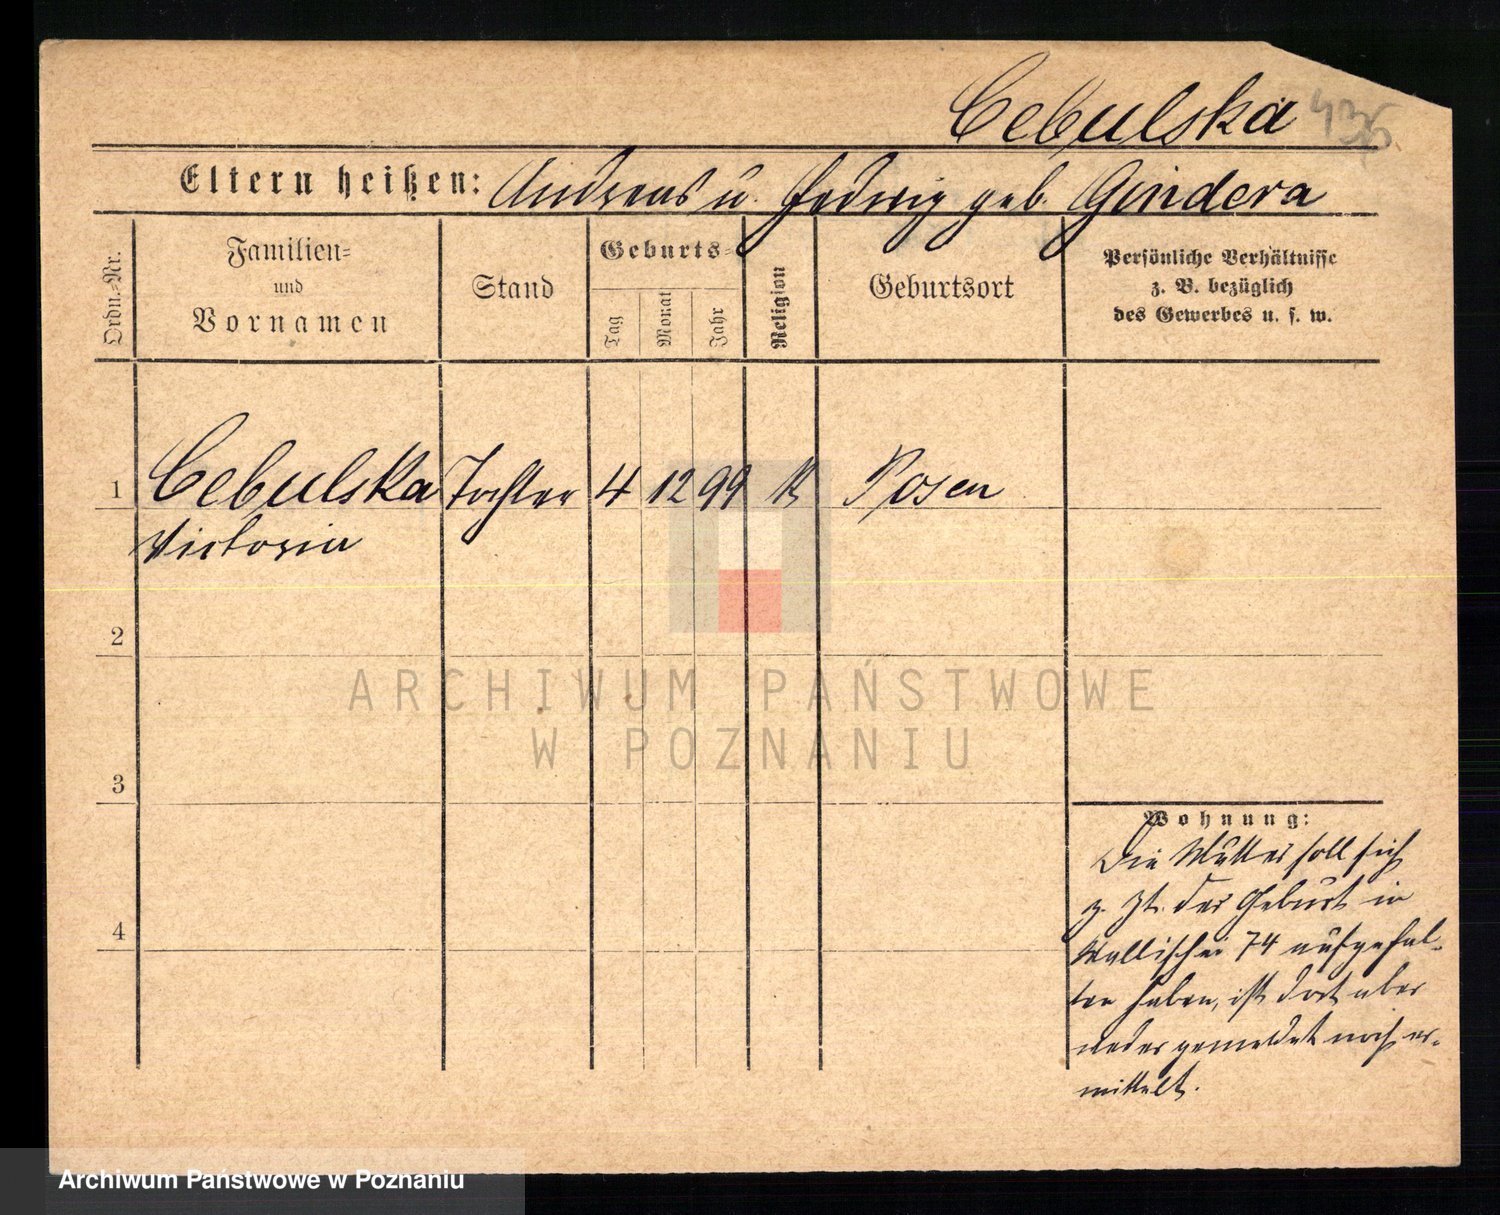 Cebulska 436.
Eltern heißen: Andreas u. Hedwig geb. Gindera
Ordn.-Nr.
Familien-
und
Vornamen
Stand
Geburts-
Tag
Monat
Jahr
Religion
Geburtsort
Persönliche Verhältnisse
z. B. bezüglich
des Gewerbes u. s. w.
1 Cebulska Tochter 4 12 99 k Posen
Victoria
2
3
4
Wohnung:
Die Mutter soll sich
z. Zt. der Geburt in
Wallischei 74 aufgehal-
ten haben, ist dort aber
weder gemeldet noch er-
mittelt.
ARCHIWUM PAŃSTWOWE
W POZNANIU
Archiwum Państwowe w Poznaniu